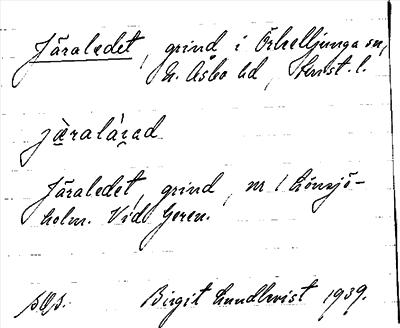 Järaledet, grind i Örkelljunga sn,
N. Åsbo hd, Krist. l.
järaláɀad
Järaledet, grind, nr 1 Lönsjö-
holm. Vid Geren.
Birgit Lundkvist 1939.